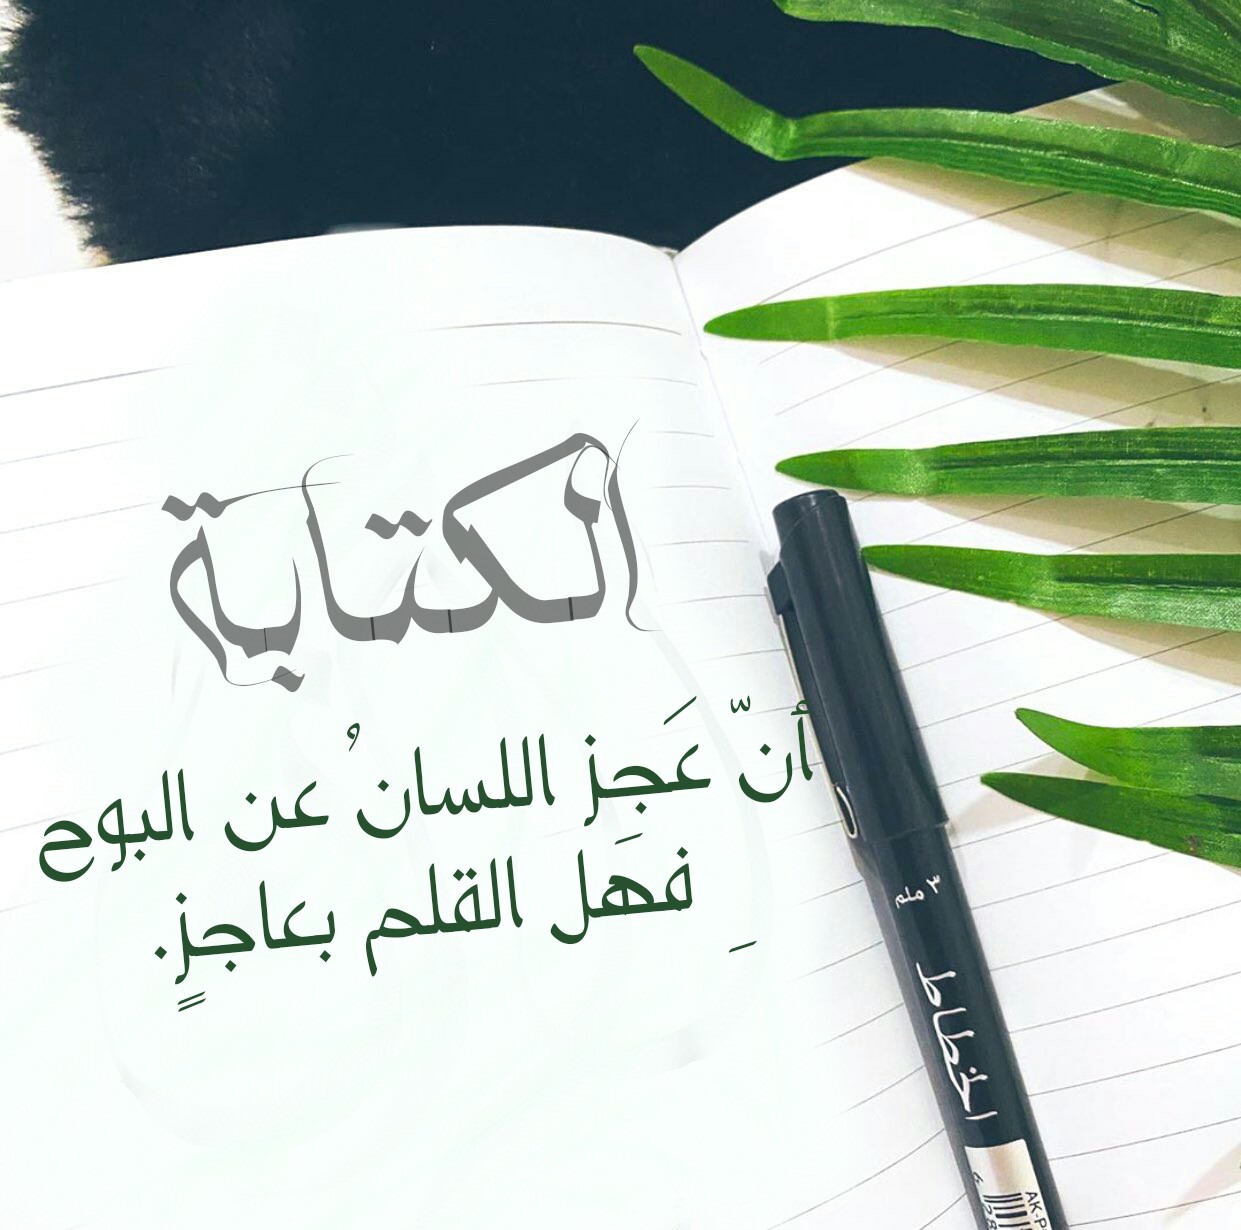 الكتابة
أنّ عَجِز اللسانُ عن البوح
فهَل القلم بعاجزٍ.
٣ ملم
الخطاط
AK-P